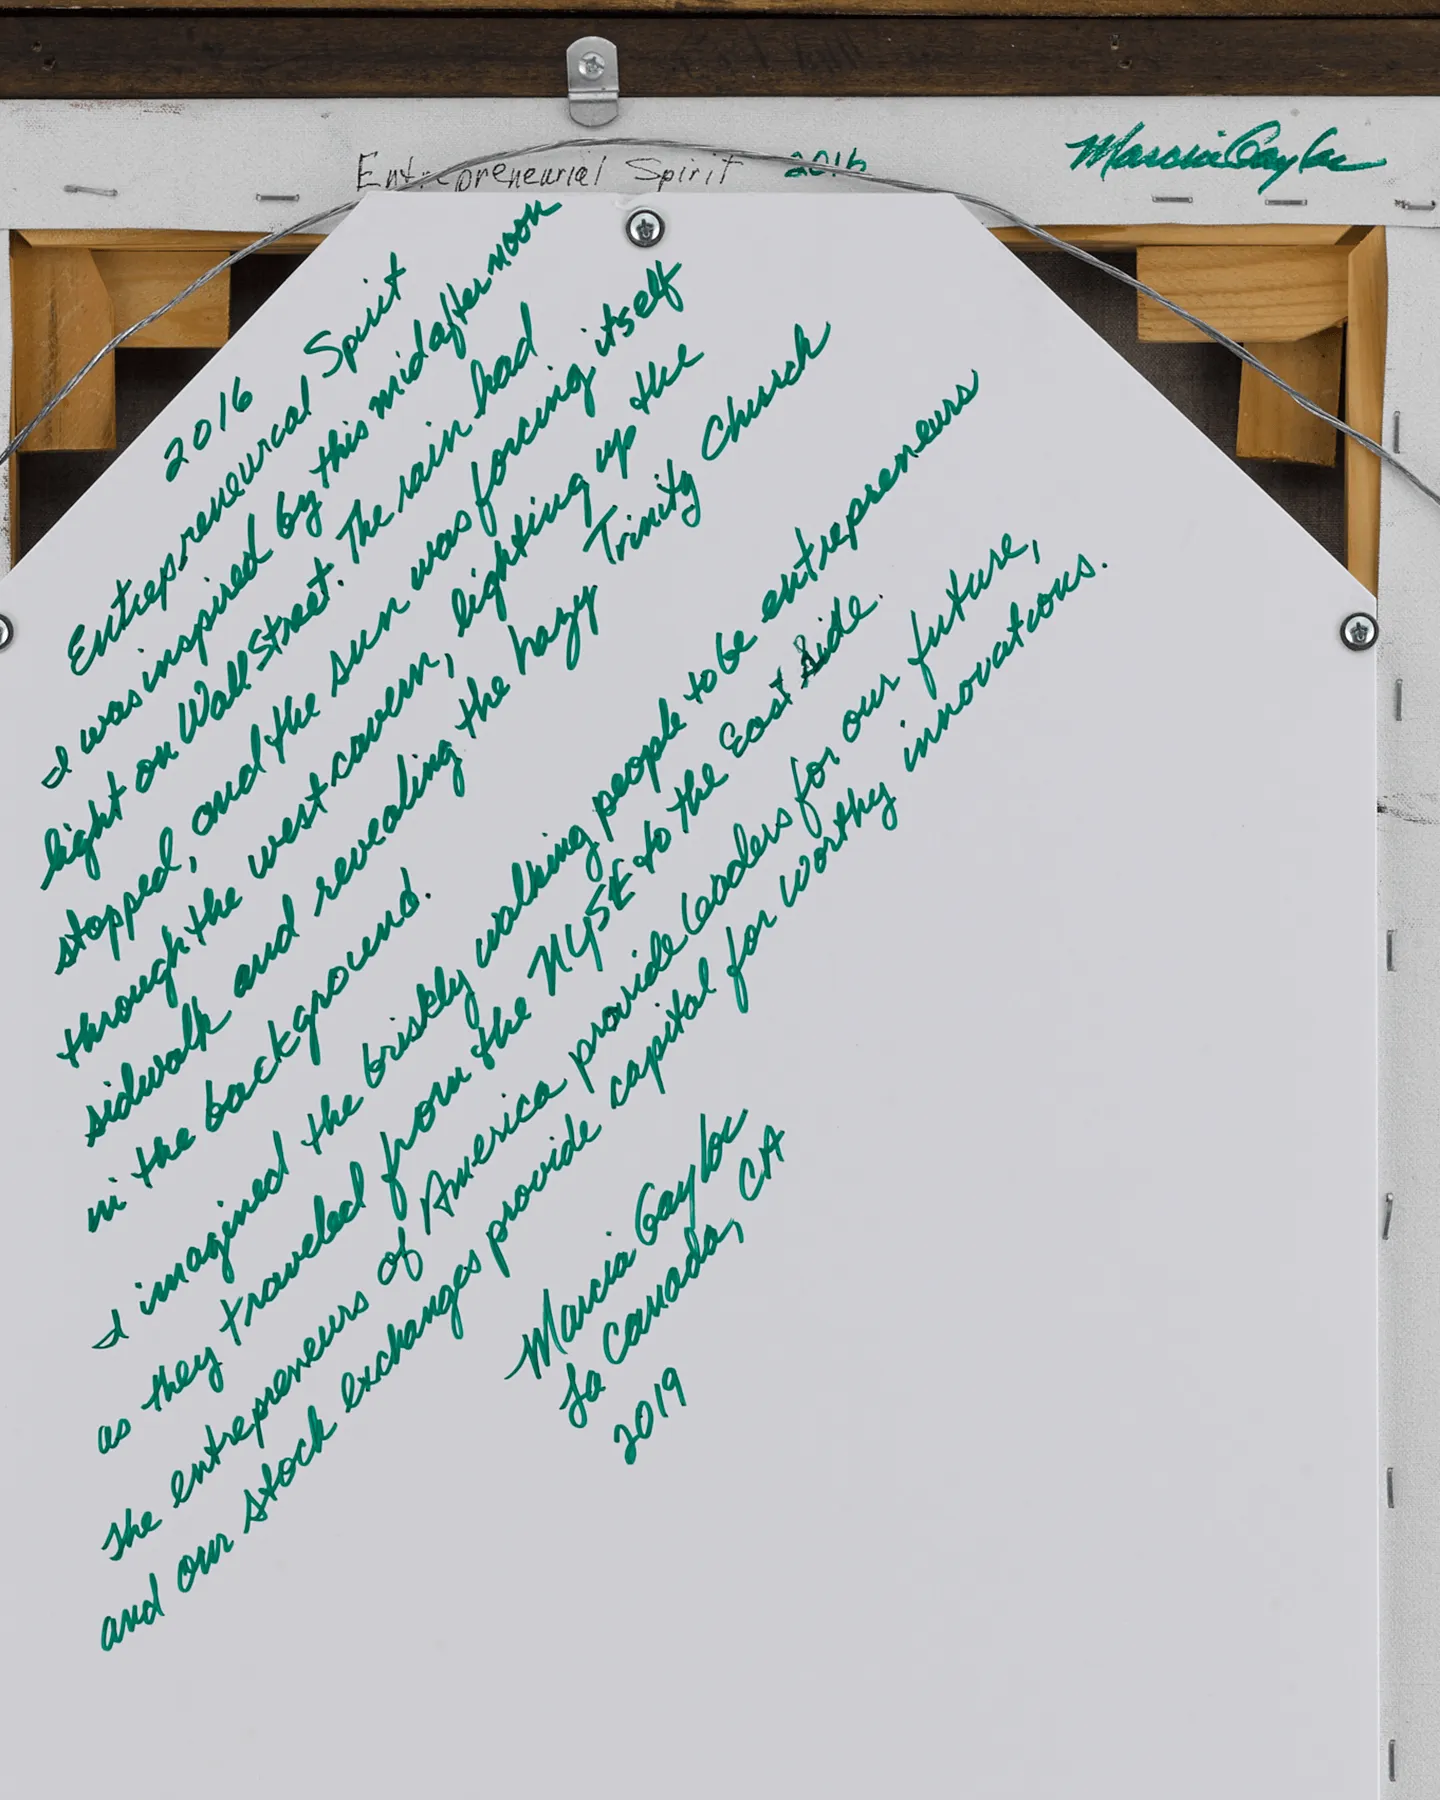 Entrepreneurial Spirit 2016
Marcia Gaylor
2016
Entrepreneurial Spirit
I was inspired by this midafternoon
light on Wall Street. The rain had
stopped, and the sun was forcing itself
through the west cavern, lighting up the
sidwalk and revealing the hazy Trinity Church
in the background.
I imagined the briskly walking people to be entrepreneurs
as they traveled from the NYSE to the East Side.
The entrepreneurs of America provide leaders for our future,
and our stock exchanges provide capital for worthy innovations.
Marcia Gaylor
La Canada, CA
2019